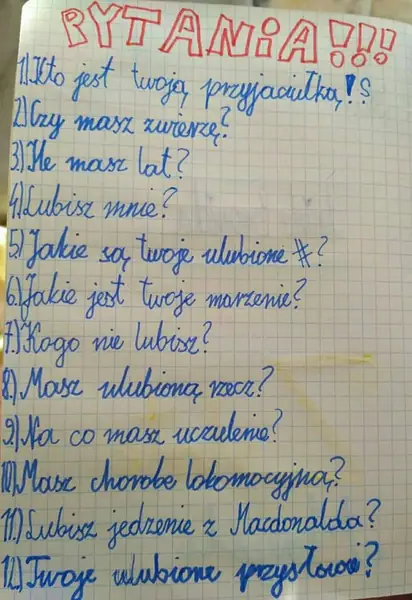 PYTANIA!!!
1) Kto jest twoją przyjaciułką!?
2) Czy masz zwierzę?
3) Ile masz lat?
4) Lubisz mnie?
5) Jakie są twoje ulubione #?
6) Jakie jest twoje marzenie?
7) Kogo nie lubisz?
8) Masz ulubioną rzecz?
9) Na co masz uczulenie?
10) Masz chorobe lokomocyjną?
11) Lubisz jedzenie z Macdonalda?
12) Twoje ulubione przysłowie?